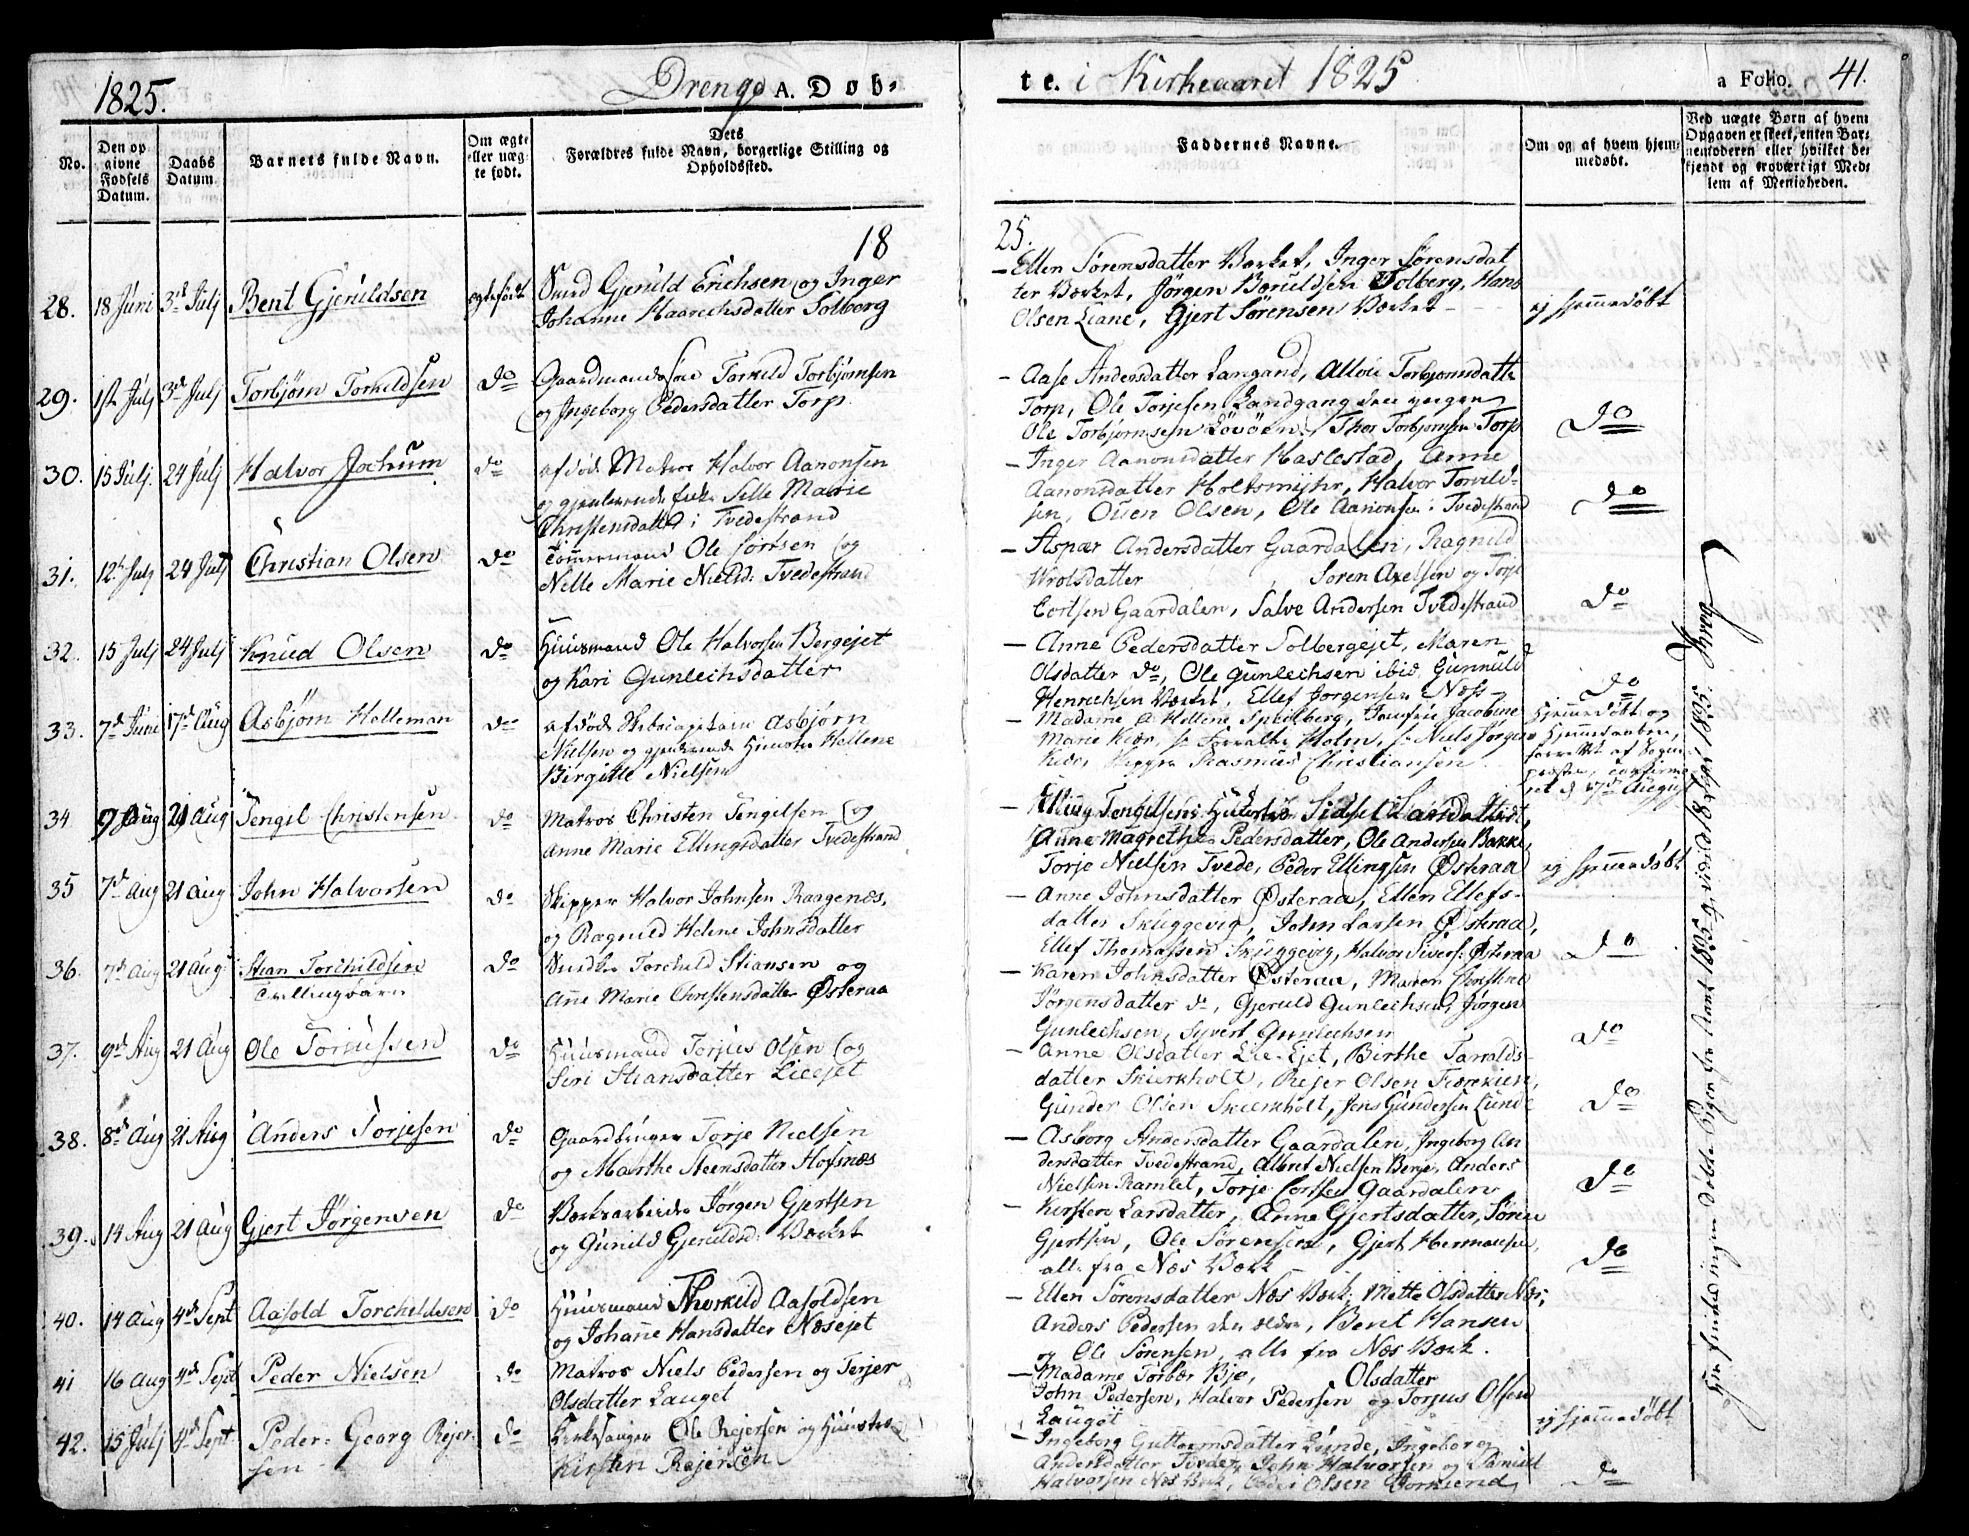 1825.
Drenge A. Døb-
te. i Kirkeaaret 1825
a Folio. 41.
No.
Den op
givne
Fødsels
Datum.
Daabs
Datum
Barnets fulde Navn.
Om ægte
eller uæg-
te født.
Dets
Forældres fulde Navn, borgerlige Stilling og
Opholdssted.
Faddernes Navne.
Om og af hvem hjem-
medøbt.
Ved uægte Børn af hvem
Opgaven er skeet, enten Bar-
nemoderen eller hvilket be-
kjendt og troværdigt Med-
lem af Menigheden.
18
25.
28. 18 Juni 3d Julj Bent Gjeruldsen ægtefødt Smed Gjeruld Erichsen og Inger
Johanne Haarechsdatter Solberg
– Ellen Sørensdatter Værket, Inger Sørensdat
ter Værket, Jørgen Børuldsen Solberg, Hans
Olsen Liane, Gjert Sørensen Værket
ej hjemmedøbt
29. 1st Julj 3d Julj Torbjørn Torkildsen do Gaardmandssøn Torkild Torbjørnsen
og Ingeborg Pedersdatter Torp
– Aase Andersdatter Langand, Torbjørnsdatter
Torp, Ole Torjesen Landgang den yngre,
Ole Torbjørnsen, Thor Torbjørnsen Torp
do
30. 15 Julj. 24 Julj Halvor Jochum do afdøde Matros Halvor Aanonsen
og gjenlevende Enke Sille Marie
Christensdatter i Tvedestrand
– Inger Aanonsdatter Haslestad, Anne
Aanonsdatter Holtsmyhr, Halvor Torvild-
sen, Ouen Olsen, Ole Aanonsen i Tvedestrand
do
31. 12te Julj 24 Julj Christian Olsen do Tømmermand Ole Sørnsen og
Nelle Marie Nielsd: Tvedestrand
– Aspær Andersdatter Gaardalen, Ragnild
Wrolsdatter, Søren Axelsen og Torje
Cortsen Gaardalen, Salve Andersen Tvedestrand
do
32. 15 Julj 24 Julj Knud Olsen do Huusmand Ole Halvorsen Bergejet
og Kari Gunlechsdatter
– Anne Pedersdatter Solbergejet, Maren
Olsdatter do, Ole Gunlechsen ibid, Gunnuld
Henrechsen Værket, Ellef Jørgensen Næss
do
33. 7d Juni 17d Aug Asbjørn Helleman do afdøde Asbjørn
Nielsen og gjenlevende Huustru Hellene
Birgitte Nielsen
– Madame A Hellene Sphilberg, Jomfrue Jacobine
Marie Kiær, Hr Holm, Hr Niels Jørgen
Kiær, Skipper Rasmus Christiansen
hjemmedøbt og
hjemmedaaben,
forrettet af Sogne-
præsten, confirme-
ret d 17de August
34 9 Aug 21 Aug Tengel Christensen do Matros Christen Tengelsen og
Anne Marie Ellingsdatter Tvedestrand
– Tengelsens Hustrue Sidsel Larsdatter,
Anne Magrethe Pedersdatter, Ole Andersen Bakke,
Torje Nielsen Tvede, Peder Ellingsen Østeraa
ej hjemmedøbt
35 7d Aug 21 Aug John Halvorsen do Skipper Halvor Johnsen Raagenæs,
og Ragnild Helene Johnsdatter
– Anne Johnsdatter Østeraa, Ellen Ellefs-
datter Skuggevig, John Larsen Østeraa,
Ellef Thomassen Skuggevig, Halvor Sivers: Østeraa
do
36. 7d Aug 21 Aug Stian Torchildsen do Smed Torchild Stiansen og
Tvillingbarn
Anne Marie Christensdatter Østeraa
– Karen Johnsdatter Østeraa, Maren Christine
Jørgensdatter do, Gjeruld Gunlechsen, Jørgen
Gunlechsen, Syvert Gunlechsen
do
37. 9d Aug 21 Aug Ole Torjussen do Huusmand Torjus Olsen og
Siri Stiansdatter Lieejet
– Anne Olsdatter Lie-Ejet, Birthe Tarralds-
datter Skierkholt, Rejer Olsen,
Gunder Olsen Skierkholt, Jens Gundersen Lunde
do
38. 8d Aug 21 Aug Anders Torjesen do Gaardbruger Torje Nielsen
og Marthe Steensdatter Hofsnæs
– Asborg Andersdatter Gaardalen, Ingeborg An
dersdatter Tvedestrand, Albret Nielsen Berje, Anders
Nielsen Ramlet, Torje Cortsen Gaardalen
do
39. 14 Aug 21 Aug Gjert Jørgensen do Værksarbeider Jørgen Gjertsen
og Gunild Gjeruldsd: Værket
– Kirsten Larsdatter, Anne Gjertsdatter, Søren
Gjertsen, Ole Sørensen, Gjert Hermansen,
alle fra Næs Værk
do
40. 14 Aug 4d Sept Aasold Torchildsen do Huusmand Thorkild Aasoldsen
og Johanne Hansdatter Næsejet
– Ellen Sørensdatter Næs Værk, Mette Olsdatter Næs,
Anders Pedersen den ældre, Bent Hansen
og Ole Sørensen, alle fra Næs Værk.
41 16 Aug 4d Sept Peder Nielsen do Matros Niels Pedersen og Terjer
Olsdatter Lauget
– Madame Torbør Bje, Olsdatter
John Pedersen, Halvor Pedersen og Torjus Olsen
Laugøt
ej hjemmedøbt
42. 15 Julj 4d Sept Peder Georg Rejer-
sen
do Kirkesanger Ole Rejersen og Huustrue
Kirsten Rejersen
– Ingeborg Guttormsdatter Lunde, Ingeborg
Andersdatter Tveder, John Halvorsen og Samuel
Halvorsen Næs Værk, Peder Olsen
do